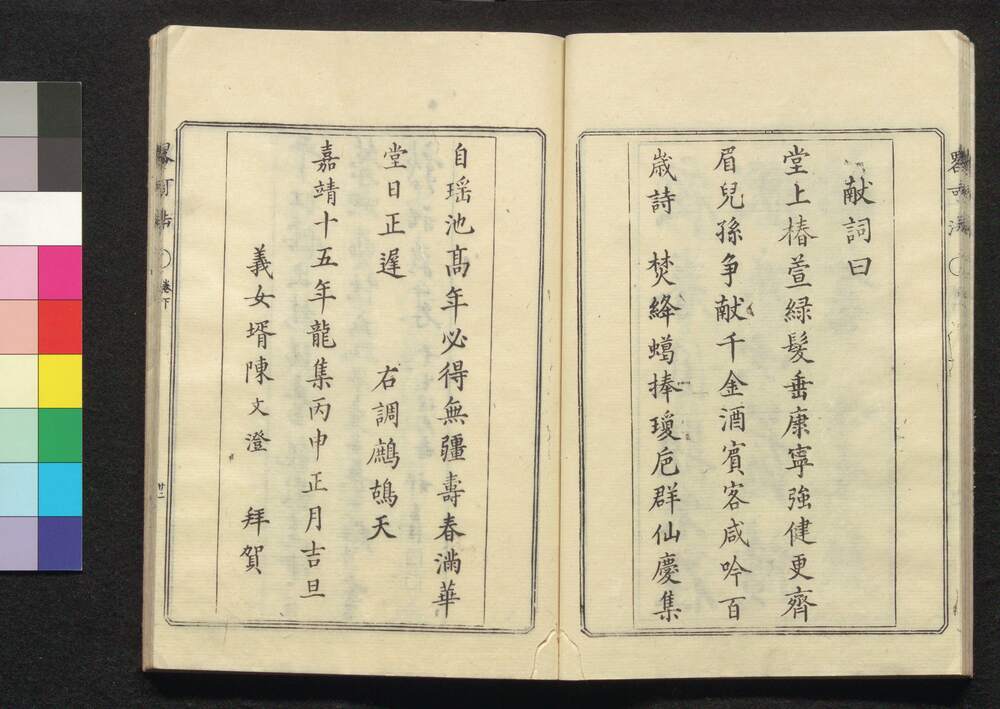 献詞曰
堂上椿萱緑髮垂康寧強健更齊
眉兒孫争献千金酒賓客咸吟百
歳詩　焚絳蠋捧瓊巵群仙慶集
自瑶池髙年必得無疆壽春滿華
堂日正遅　右調鷓鴣天
嘉靖十五年龍集丙申正月吉旦
義女壻陳文澄　拜賀
卷下
廿二